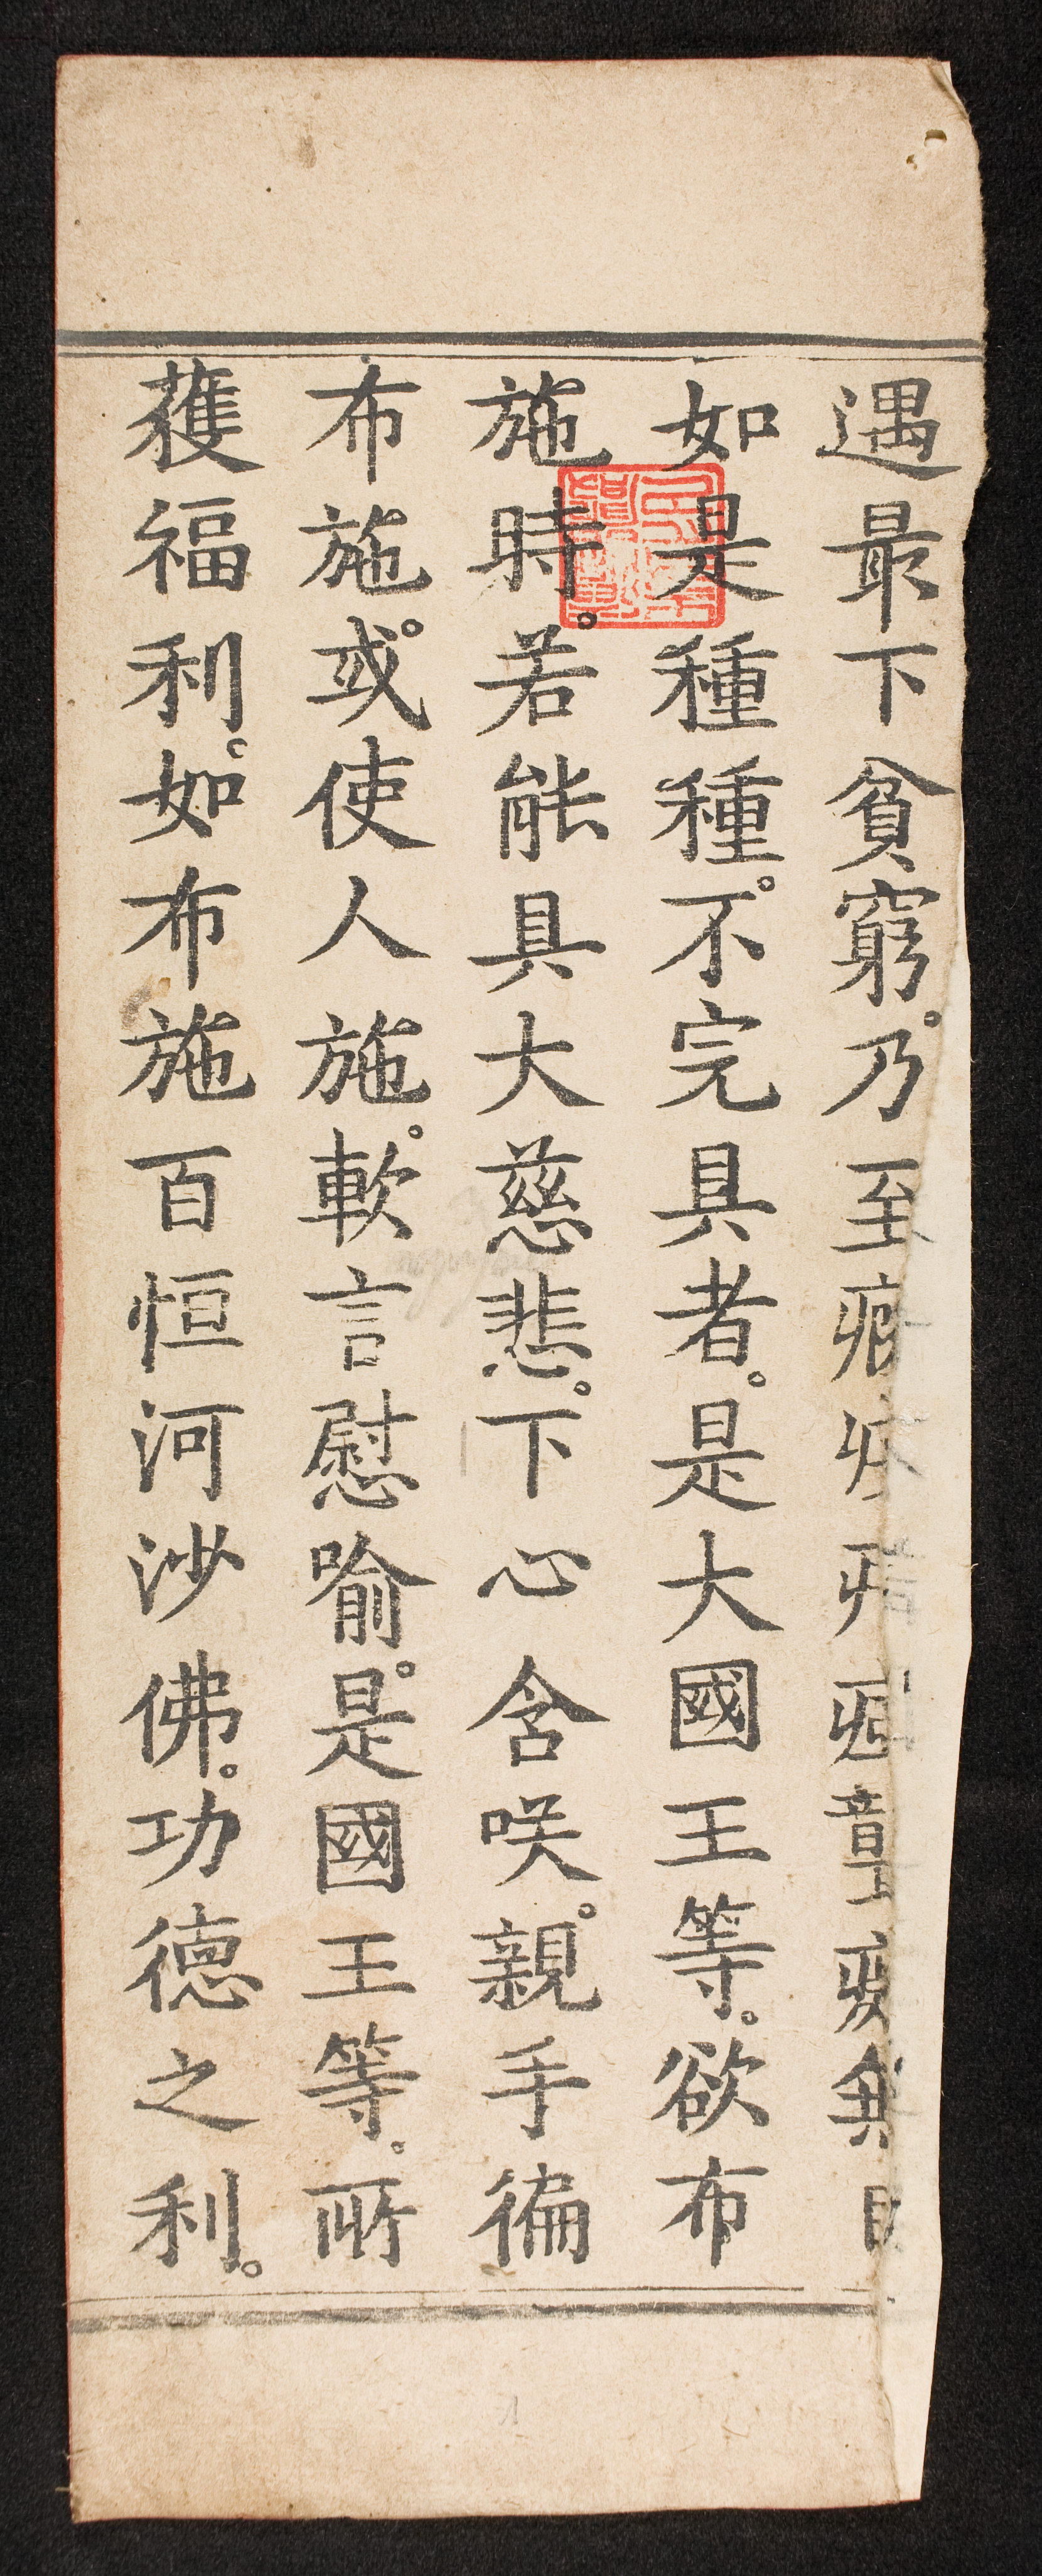 遇最下貧窮。乃至
如是種種。不完具者。是大國王等。欲布
施時。若能具大慈悲。下心含咲。親手徧
布施。或使人施。軟言慰喻。是國王等。所
獲福利。如布施百恒河沙佛。功德之利。